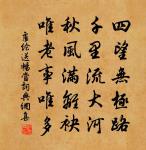 四望無極路
千里流大河
秋風滿離袂
唯老事唯多
盧綸送暢當詞典網集